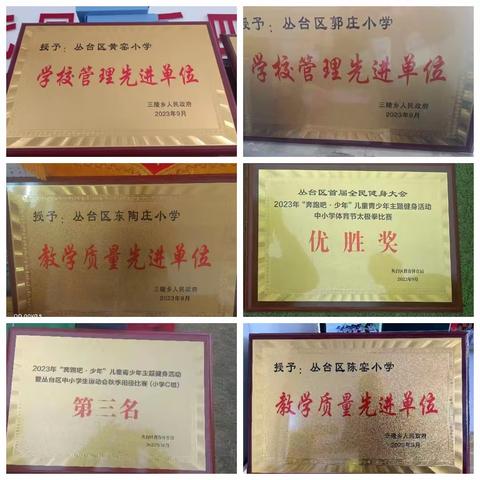 授予：丛台区黄窑小学
学校管理先进单位
三陵乡人民政府
2023年9月
授予：丛台区郭庄小学
学校管理先进单位
三陵乡人民政府
2023年9月
授予：丛台区东陶庄小学
教学质量先进单位
三陵乡人民政府
2023年9月
丛台区首届全民健身大会
2023年“奔跑吧·少年”儿童青少年主题健身活动
中小学体育节太极拳比赛
优胜奖
丛台区教育体育局
2023年9月
2023年“奔跑吧·少年”儿童青少年主题健身活动
暨丛台区中小学生运动会秋季田径比赛（小学C组）
第三名
丛台区教育体育局
授予：丛台区陈窑小学
教学质量先进单位
三陵乡人民政府
2023年9月